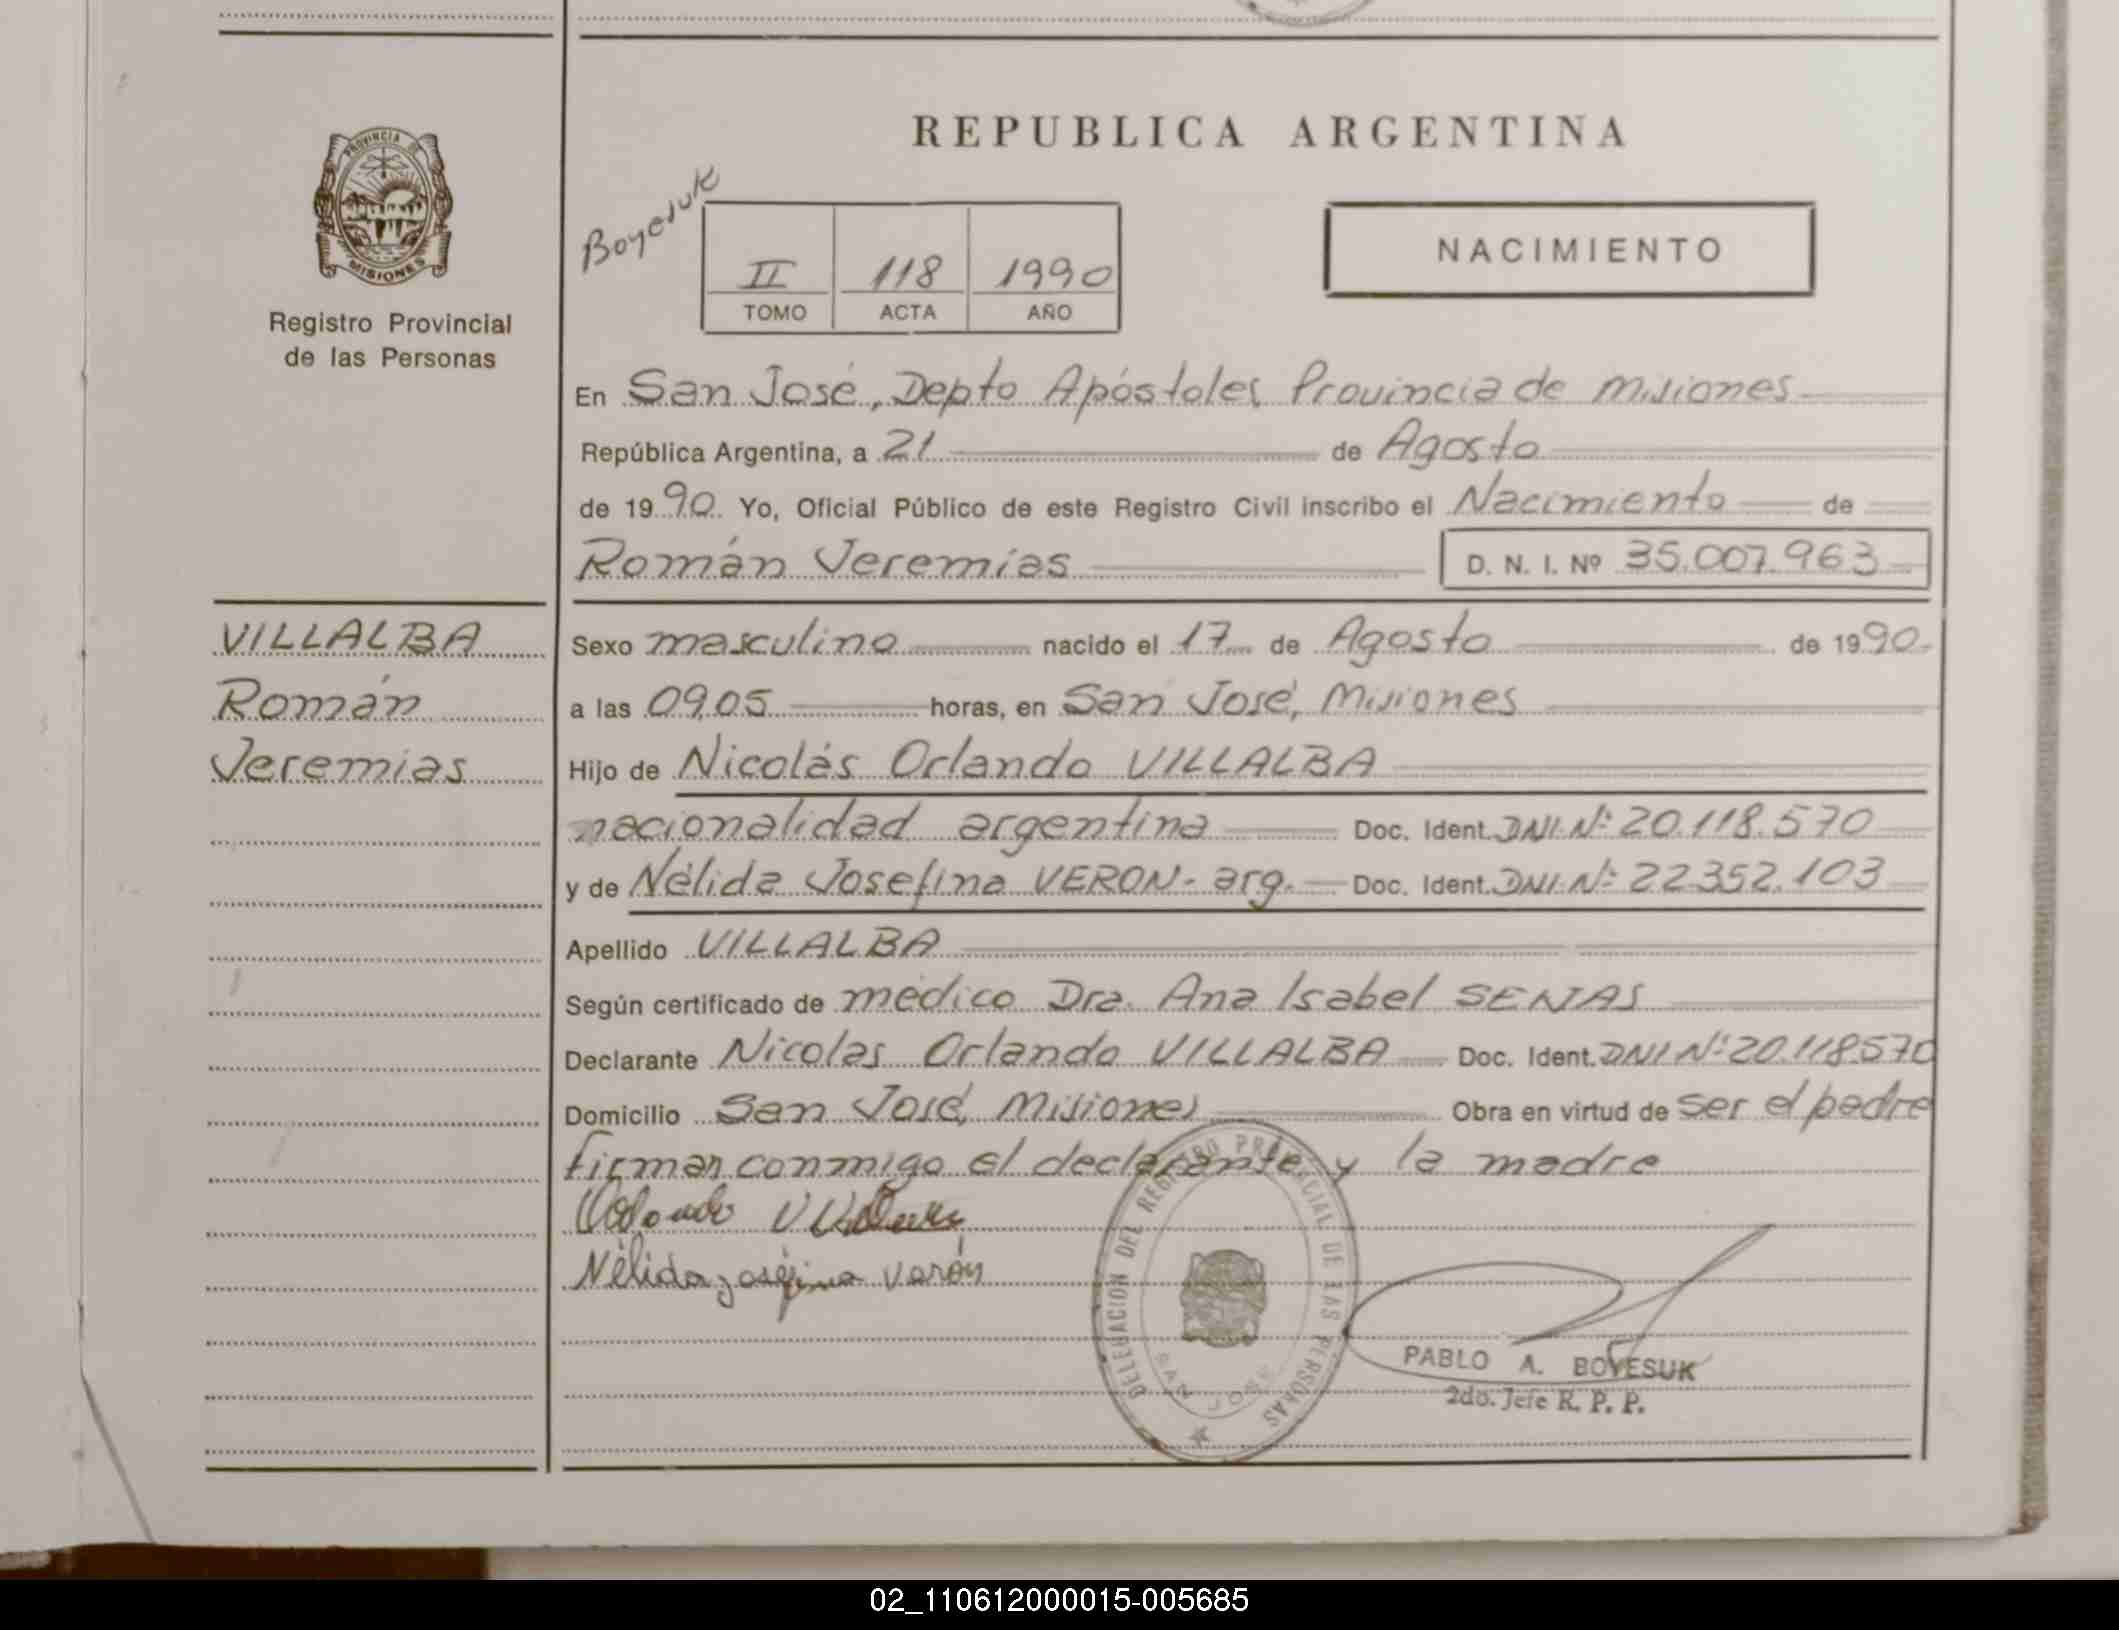 REPUBLICA ARGENTINA
PROVINCIA DE
MISIONES
Registro Provincial
de las Personas
Boyesuk
II 118 1990
TOMO ACTA AÑO
NACIMIENTO
En San José, Depto Apóstoles Provincia de Misiones
República Argentina, a 21 de Agosto
de 1990 Yo, Oficial Público de este Registro Civil inscribo el Nacimiento de
Román Jeremías D. N. I. Nº 35.007.963
VILLALBA
Román
Jeremias
Sexo masculino nacido el 17 de Agosto de 1990
a las 09,05 horas, en San José, Misiones
Hijo de Nicolás Orlando VILLALBA
nacionalidad argentina Doc. Ident. DNI Nº 20.118.570
y de Nélida Josefina VERON- arg. Doc. Ident. DNI Nº 22.352.103
Apellido VILLALBA
Según certificado de médico Dra. Ana Isabel SENAS
Declarante Nicolas Orlando VILLALBA Doc. Ident. DNI Nº 20.118.570
Domicilio San José, Misiones Obra en virtud de ser el padre
Firman conmigo el declarante y la madre
Nélida josefina verón
DELEGACION DEL REGISTRO PROVINCIAL DE LAS PERSONAS
SAN JOSE
PABLO A. BOYESUK
2do. Jefe R. P. P.
02_110612000015-005685